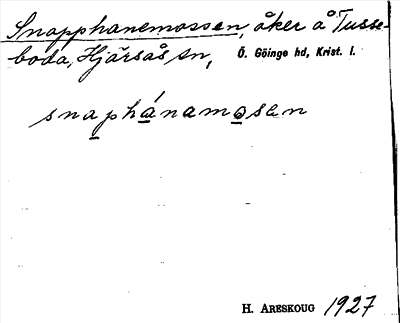 Snapphanemossen, åker å Tusse-
boda, Hjärsås sn, Ö. Göinge hd, Krist. l.
snaphánamosen
H. ARESKOUG 1927